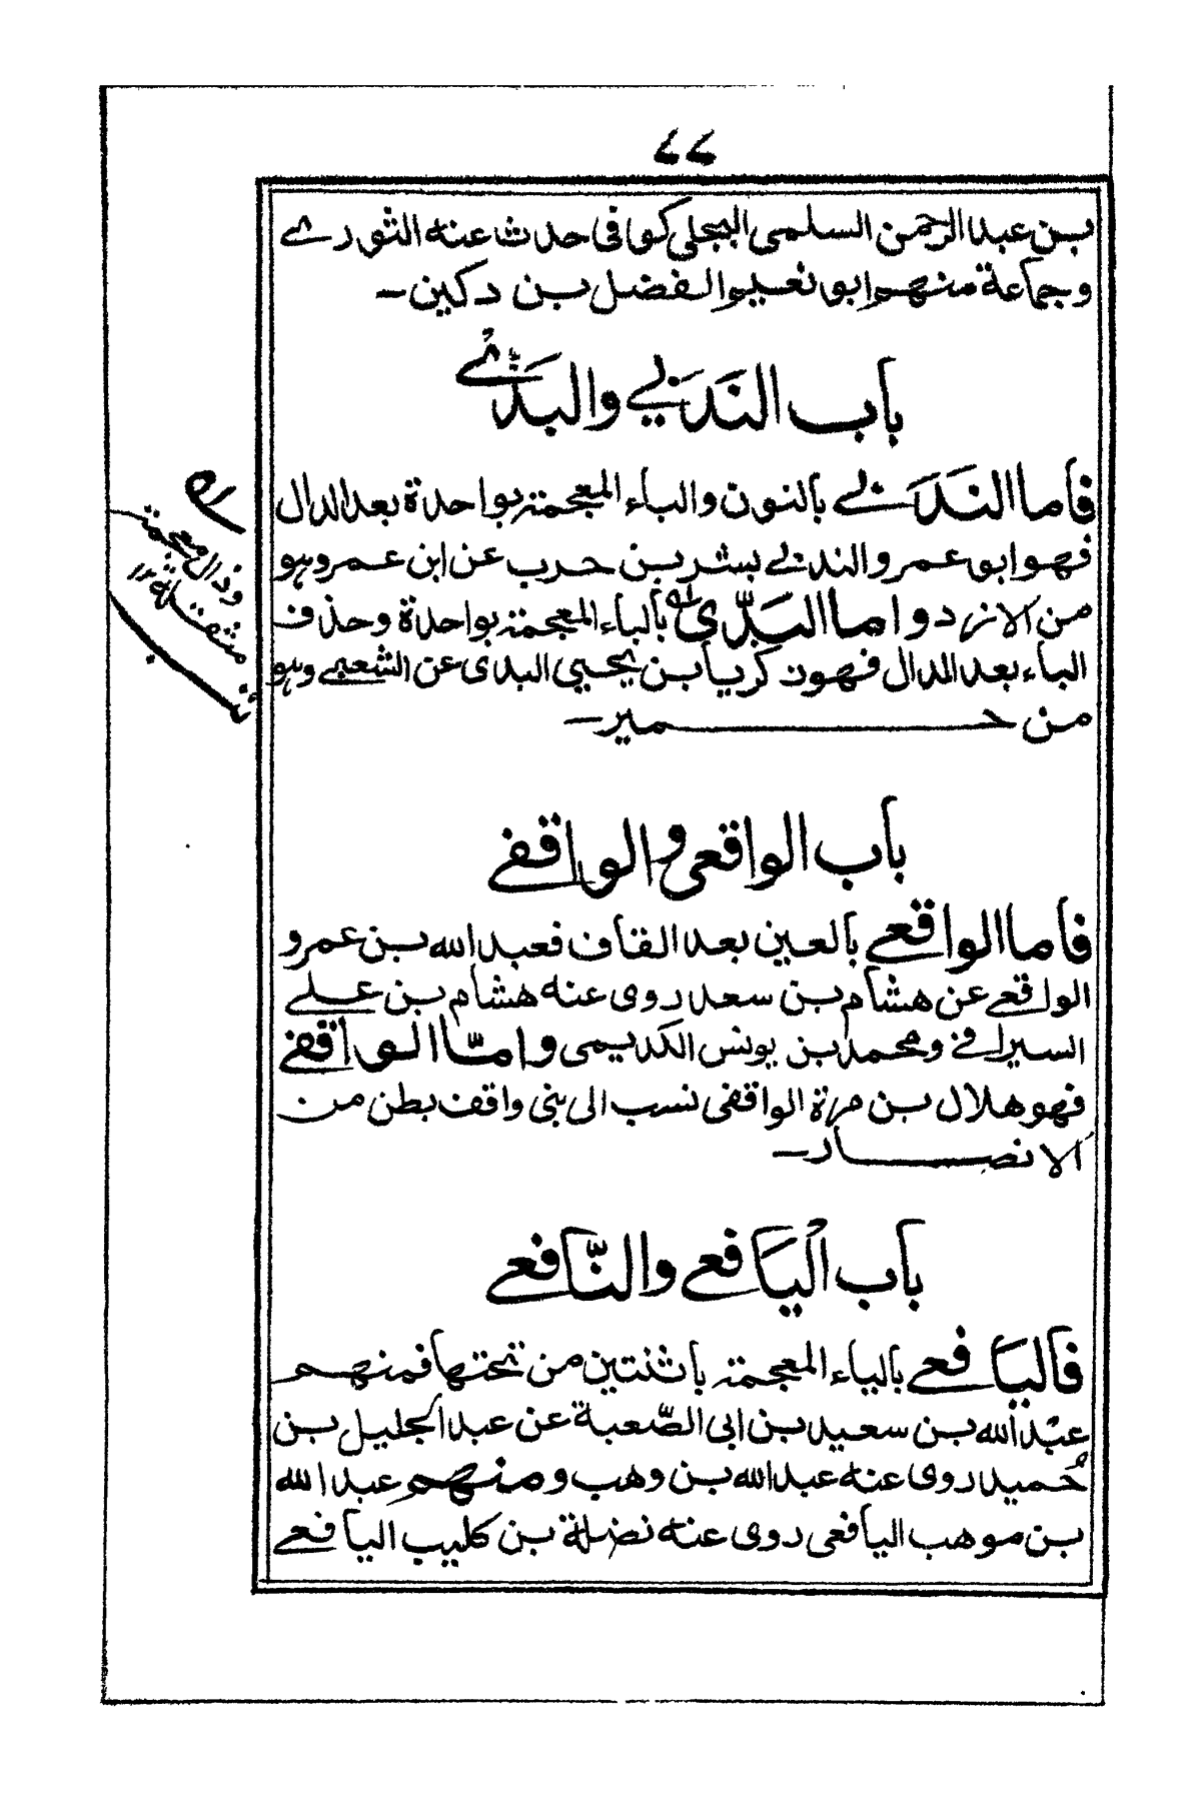 ۷۷
بن عبد الرحمن السلمى البجلى كوفى حدث عنه الثورے
وجماعة منهم ابو نعيم الفضل بن دكين ـ
باب النَدَبي والبَدّے
فاما الندَبے بالنون والباء المعجمة بواحدة بعد الدال
فهو ابو عمرو الندبے بشر بن حرب عن ابن عمر وهو
من الازد واما البَدّى بالباء المعجمة بواحدة وحذف
الباء بعد الدال فهو زكريا بن يحيى البدى عن الشعبے وهو
من حمير ـ
باب الواقعى والواقفے
فاما الواقعے بالعين بعد القاف فعبد الله بن عمرو
الواقعے عن هشام بن سعد روى عنه هشام بن علے
السيرافے ومحمد بن يونس الكديمى وامّا الواقفے
فهو هلال بن مرة الواقفى نسب الى بنى واقف بطن من
الانصار ـ
باب اليَافعے والنّافعے
فاليَافعے بالياء المعجمة باثنتين من تحتها فمنهم
عبْد الله بن سعيد بن ابى الصّعبة عن عبد الجليل بن
حُميد روى عنه عبد الله بن وهب ومنهم عبد الله
بن موهب اليافعى روى عنه نضلة بن كليب اليافعے
وذال معجمة
مثقلة ۱۲